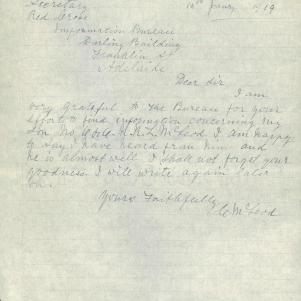 Secretary
Red Cross
Information Bureau
Darling Building
Franklin St
Adelaide
Dear Sir
I am
very grateful to the Bureau for your
effort to find information concerning my
Son
McLeod I am happy
to say I have heard from him and
he is almost well. I shall not forget your
goodness. I will write again later
on.
Yours Faithfully
McLeod